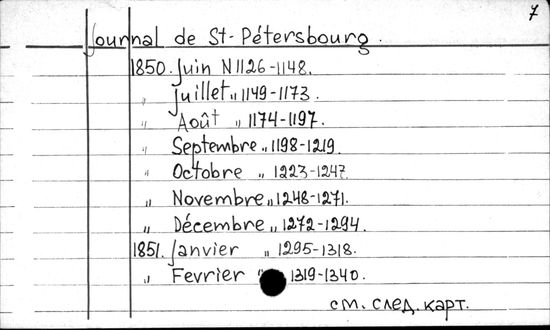 7
Journal de St-Pétersbourg.
1850. Juin N 1126-1148.
" Juillet " 1149-1173.
" Août " 1174-1197.
" Septembre " 1198-1219.
" Octobre " 1223-1247.
" Novembre " 1248-1271.
" Décembre " 1272-1294.
1851. Janvier " 1295-1318.
" Fevrier " 1319-1340.
см. след. карт.